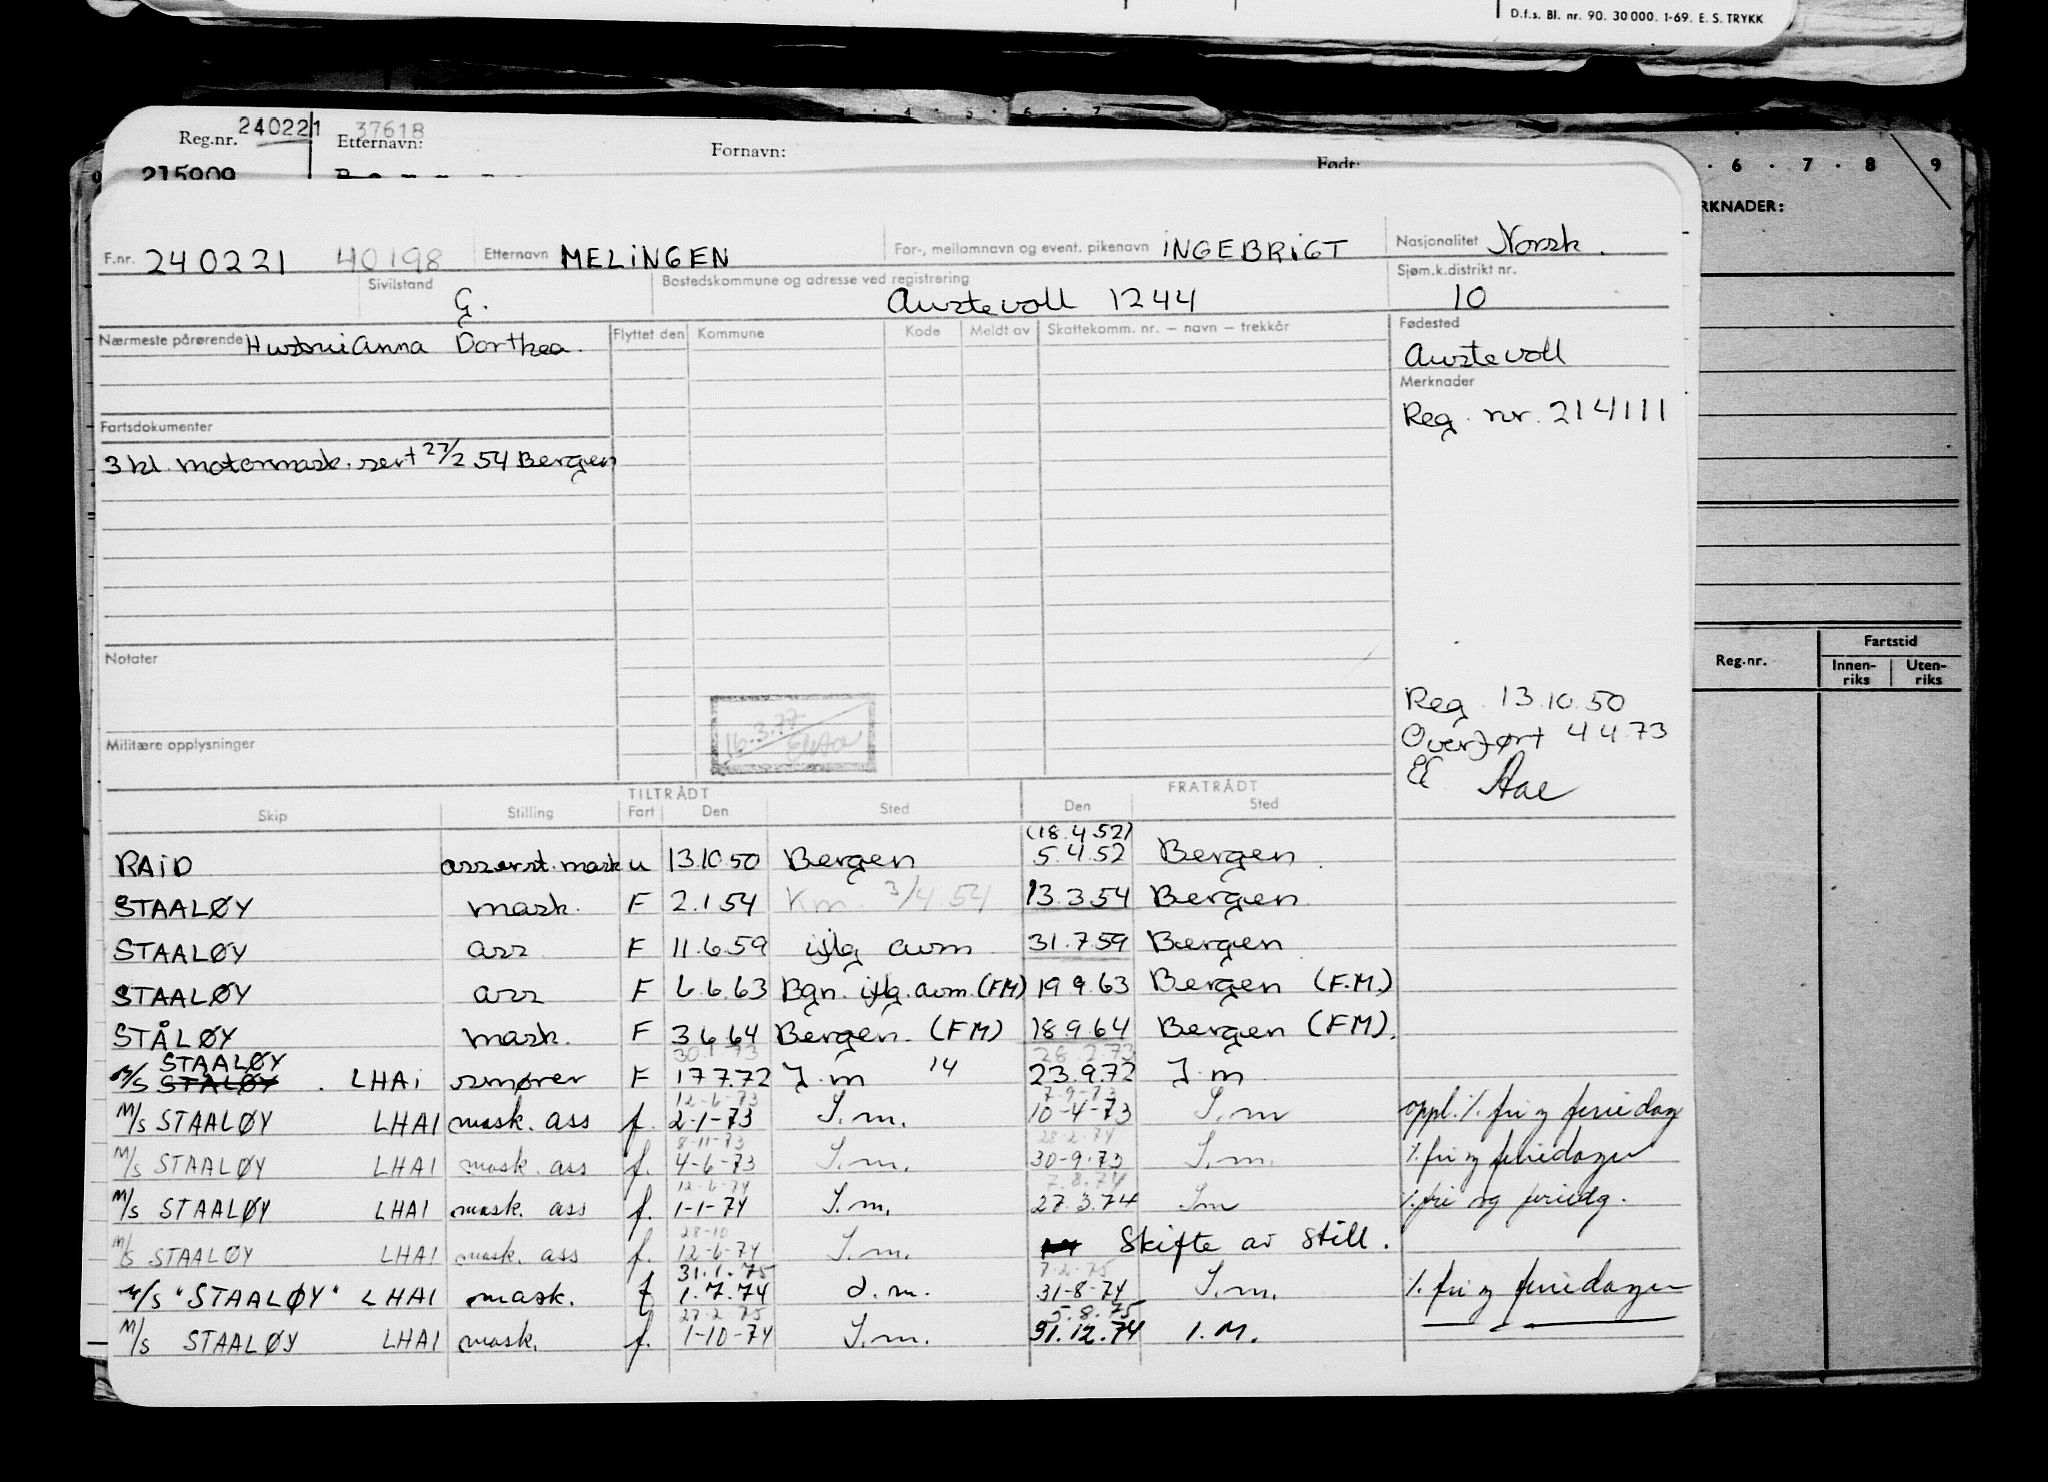 D.f.s. Bl. nr. 90. 30 000. 1-69. E. S. TRYKK
4 . 5 . 6 . 7
Reg.nr. 240221 37618 Etternavn: Fornavn: Født:
215909
6 . 7 . 8 . 9
RKNADER:
F.nr. 240221 40198 Etternavn MELINGEN For-, mellomnavn og event. pikenavn INGEBRIGT Nasjonalitet Norsk.
Sivilstand G. Bostedskommune og adresse ved registrering Austevoll 1244 Sjøm.k.distrikt nr. 10
Nærmeste pårørende Hustrui Anna Dorthea. Flyttet den Kommune Kode Meldt av Skattekomm. nr. – navn – trekkår Fødested
Austevoll
Merknader
Reg. nr. 214111
Fartsdokumenter
3 kl. motormask. sert 27/2 54 Bergen
Notater
Reg.nr. Fartstid
Innen-riks Uten-riks
16.3.77
Reg. 13.10.50
Overført 4 4.73
Militære opplysninger
Aae
TILTRÅDT FRATRÅDT
Skip Stilling Fart Den Sted Den Sted
(18.4.52)
RAID ass erst. mask u 13.10.50 Bergen 5.4.52 Bergen.
STAALØY mask. F 2.1 54 Km 3/4.54 13.3.54 Bergen.
STAALØY ass F 11.6.59 iflg avm 31.7.59 Bergen
STAALØY ass F 6.6.63 Bgn. iflg. avm. (FM) 19 9.63 Bergen (F.M.)
STÅLØY mask. F 3.6.64 Bergen. (FM) 18.9.64 Bergen (FM).
STAALØY 30.1.73 28.2.73
M/S STÅLØY . LHAI smører F 17 7.72 I.m 14 23.9.72 I.m
12-6-73 7-9-73
M/S STAALØY LHAI mask. ass f. 2-1-73 I.m. 10-4-73 I.m oppl. %. fri og feriedag
8-11-73 28-2-74
M/S STAALØY LHAI mask. ass f. 4-6-73 I.m. 30-9.73 I.m. %. fri og feriedager
12-6-74 7.8.74
M/S STAALØY LHAI mask. ass f. 1-1-74 I.m. 27.3.74 I m %. fri og feriedg.
28-10
M/S STAALØY LHAI mask. ass f. 12-6-74 I.m. Skifte av still.
31.1.75 7-2-75
M/S "STAALØY" LHAI mask. f 1.7.74 I.m. 31-8-74 I.m. %. fri og feriedager
27-2 75 5.8.75
M/S STAALØY LHAI mask. f. 1-10-74 I.m. 31.12.74 I.M.